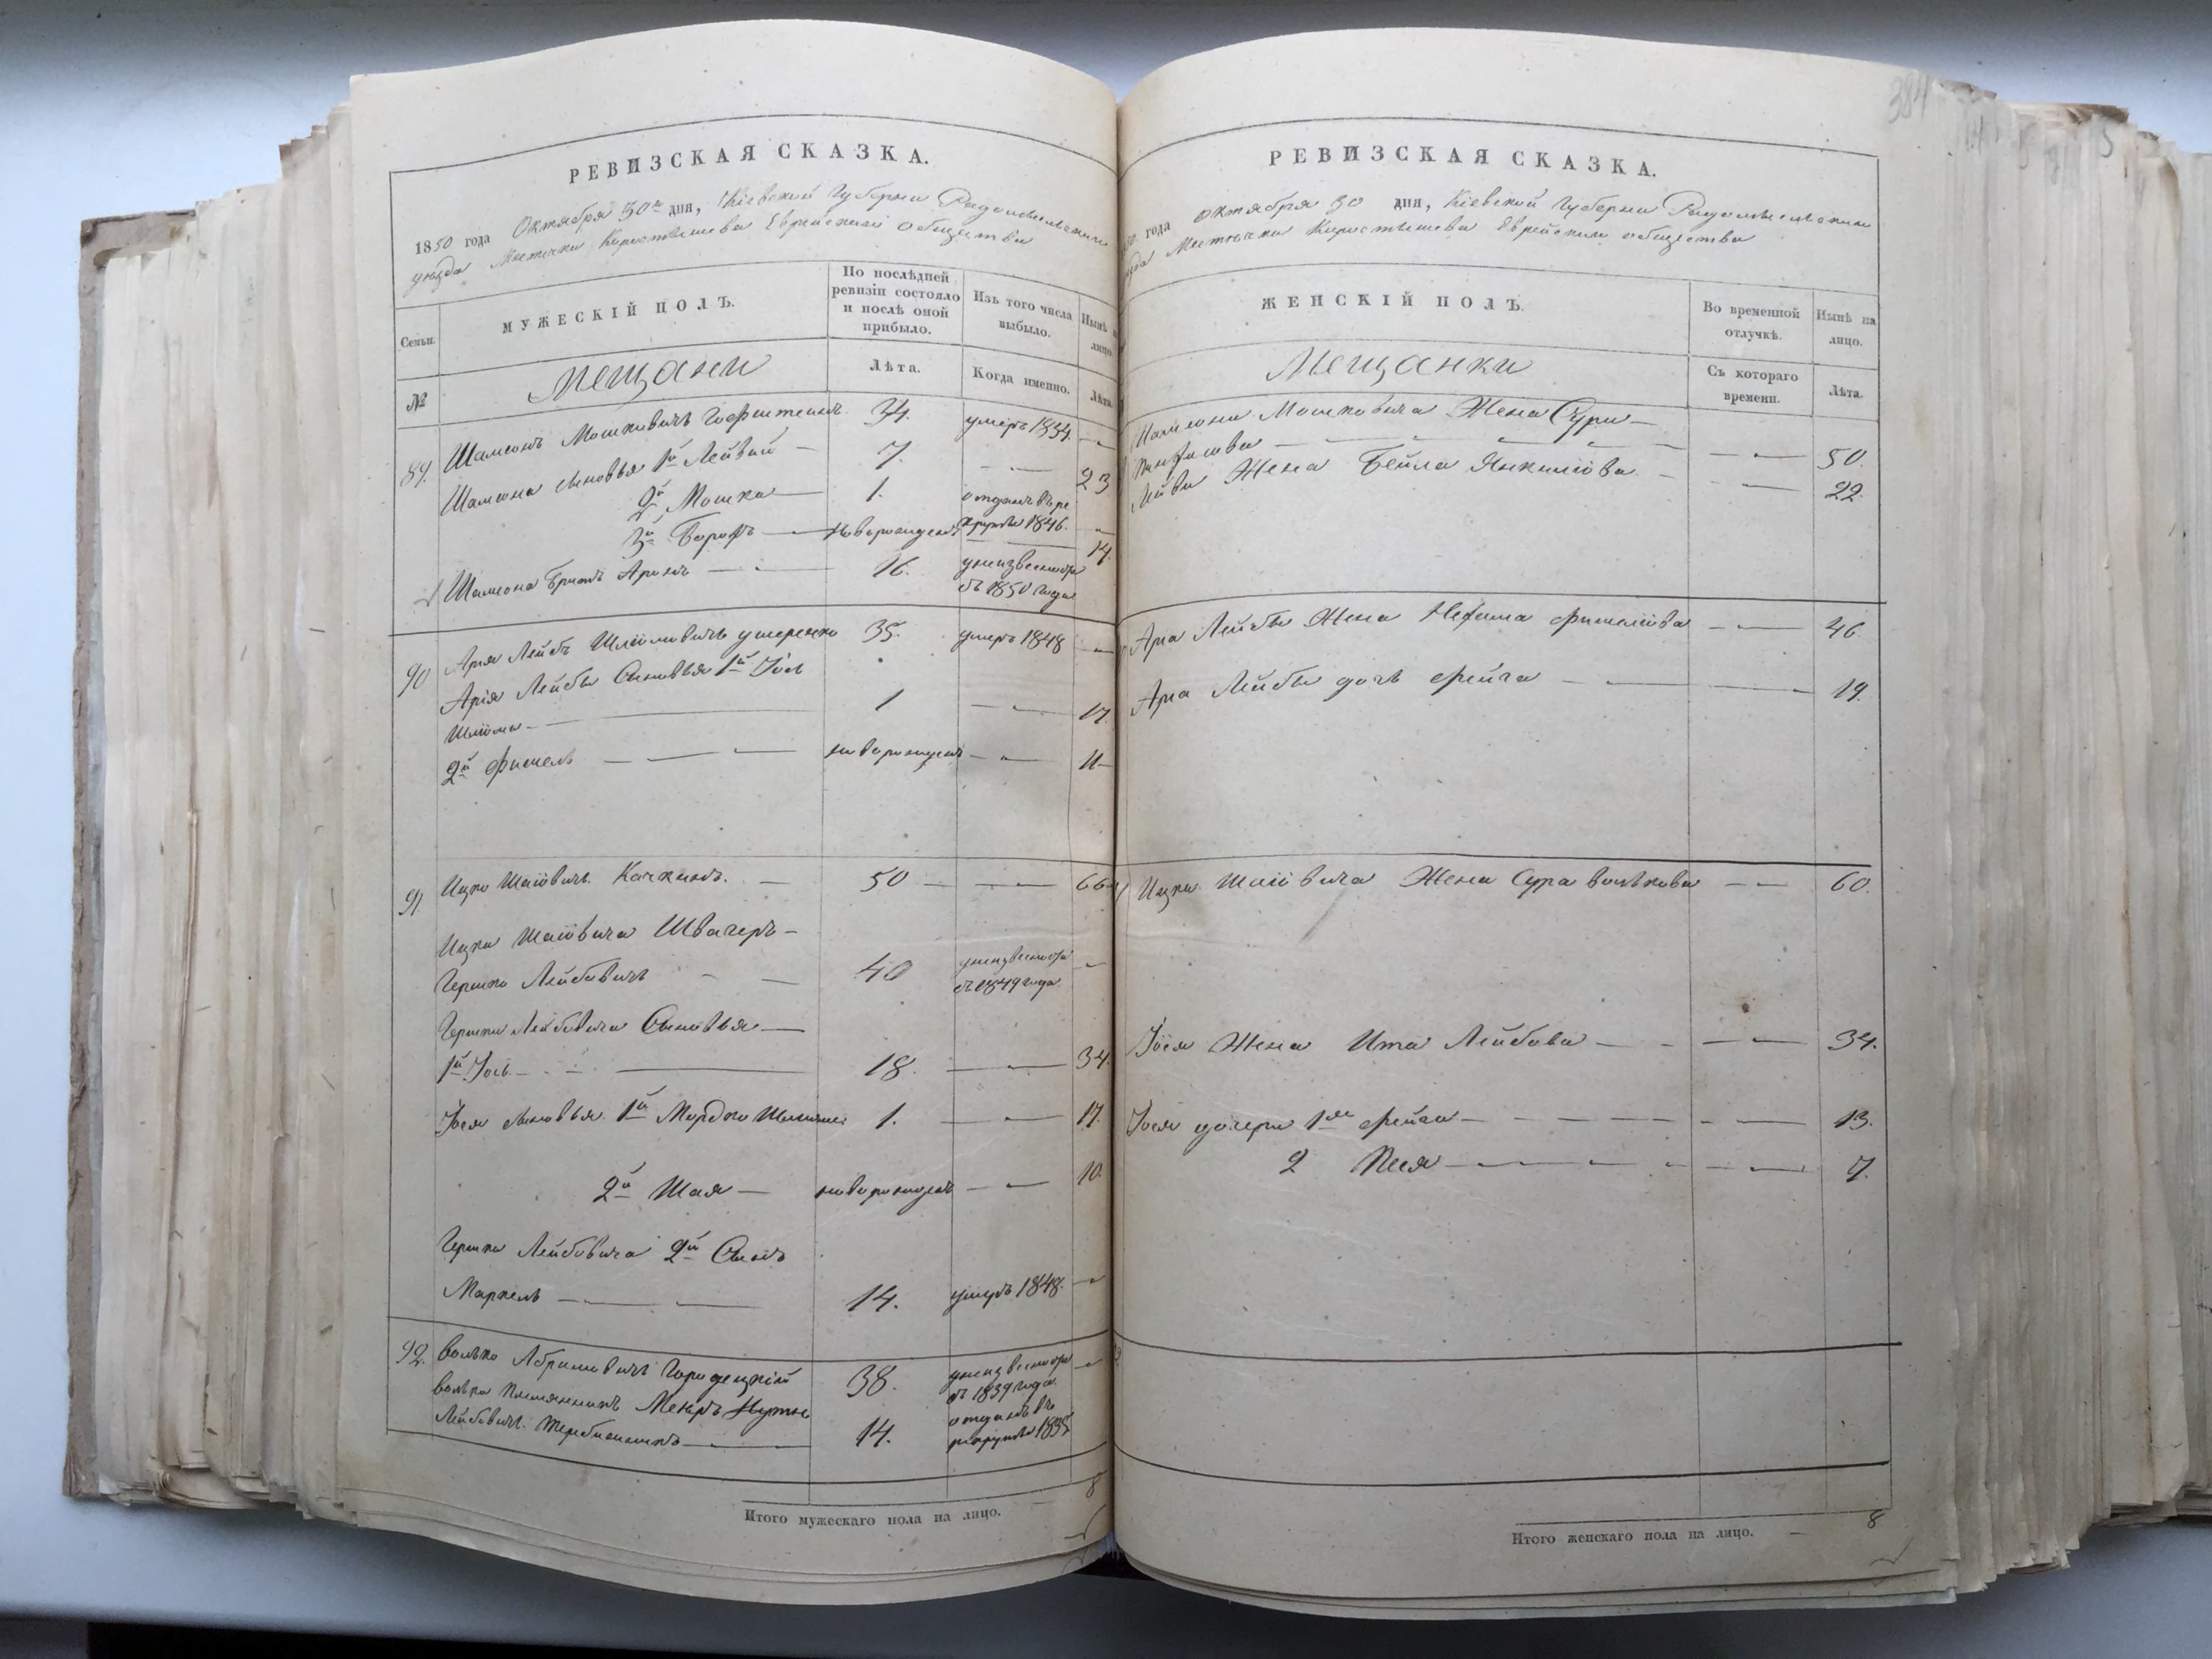 РЕВИЗСКАЯ СКАЗКА.
1850 года Октября 30го дня, Кіевской Губерніи Радомысльскаго
уѣзда Мѣстечка Коростышева Еврейскаго общества
Семьи.
МУЖЕСКІЙ ПОЛЪ.
По послѣдней ревизіи состояло и послѣ оной прибыло.
Изъ того числа выбыло.
Нынѣ на лицо.
№
Мещани
Лѣта.
Когда именно.
Лѣта.
89. Шамсонъ Мошковичъ 34. умеръ 1834. —
Шамсона сыновья 1й Лейба 7. — 23
2й Мошко — 1. отданъ въ рекруты 1846. —
3й Борохъ — новорожденъ — 14.
Шамсона братъ Аронъ — 16. у неизвестной
съ 1850 года
90 Арія Лейбъ Шліомовичъ 35. умеръ 1848 —
Арія Лейбы Сыновья 1й Іось
Шліома — 1 — 17.
2й Фишель — новорожденъ — 11
91. Ицко Шаіовичъ Качкинъ. — 50 — 66
Ицка Шаіовича Швагеръ —
Гершко Лейбовичъ — 40
съ 1849 года —
Гершка Лейбовича Сыновья —
1й Іось — 18. — 34.
Іося сыновья 1й Мордко 1. — 17.
2й Шая — новорожденъ — 10.
Гершка Лейбовича 2й Сынъ
Маркель — 14. умеръ 1848. —
92. Волько Абрамовичъ Городецкій 38.
съ 1839 года —
Волька племянникъ 14. отданъ въ
Лейбовичъ рекруты 1835
8
Итого мужескаго пола на лицо.
384
РЕВИЗСКАЯ СКАЗКА.
года Октября 30 дня, Кіевской Губерніи Радомысльскаго
Мѣстечка Коростышева Еврейскаго общества
ЖЕНСКІЙ ПОЛЪ.
Во временной отлучкѣ.
Нынѣ на лицо.
Мещанки
Съ котораго времени.
Лѣта.
Шамсона Мошковича Жена Сура —
— 50.
Лейбы Жена Бейла Янкеліова — 22.
Арія Лейбы Жена Нехама Фишеліова — 46.
Арія Лейбы дочь Фейга — 19.
Ицка Шаіовича Жена Сура Волькова — 60.
Іося Жена Ита Лейбова — 34.
Іося дочери 1я Фейга — 13.
2 Песя — 7.
8
Итого женскаго пола на лицо. —